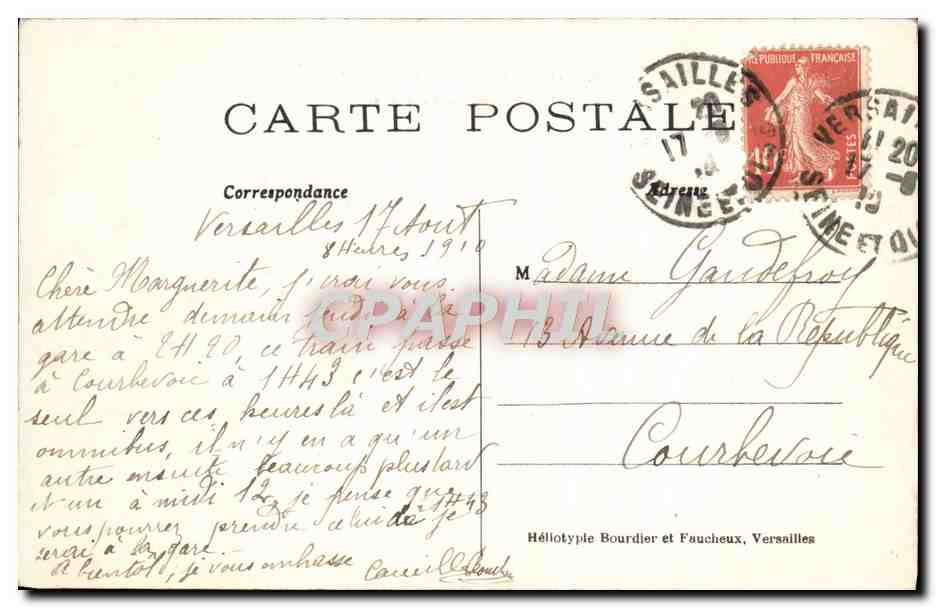 CARTE POSTALE
RÉPUBLIQUE FRANÇAISE
POSTES
10c
SAILLES
17
SEINE ET
VERSAI
11 20
17 -8
10
SEINE ET OI
Correspondance
Adresse
Versailles 17 Aout
8 Heures 1910
Chère Marguerite, j'irai vous
attendre demain jeudi à la
gare à 2H20, ce train passe
à Courbevoie à 1H43 c'est le
seul vers ces heures là et il est
omnibus, il n'y en a qu'un
autre ensuite beaucoup plus tard
et un à midi 12, je pense que
vous pourrez prendre celui de 1H43 je
serai à la gare.
A bientôt, je vous embrasse
Camille
Madame Gaudefroy
13 Avenue de la République
Courbevoie
CPAPHIL
Héliotypie Bourdier et Faucheux, Versailles